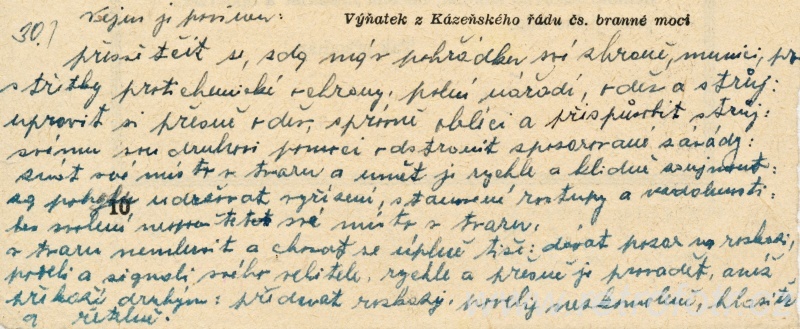 30.) Vojín je povinen: Výňatek z Kázeňského řádu čs. branné moci
přesvědčit se, zda má v pořádku své zbraně, munici, pro
středky protichemické ochrany, polní nářadí, oděv a stroj:
upravit si přesně oděv, správně obléci a přispůsobit stroj:
svému soudruhovi pomoci odstranit zpozorované závady:
znát své místo v tvaru a umět je rychle a klidně zaujmout:
za pohybu udržovat vyřízení, stanovené rostupy a vzdálenosti:
10
bez svolení své místo v tvaru.
v tvaru nemluvit a chovat se úplně tiše: dávat pozor na rozkazy,
povely a signály svého velitele, rychle a přesně je provádět, aniž
překáží druhým: předávat rozkazy, povely nezkomoleně, hlasitě
a zřetelně.